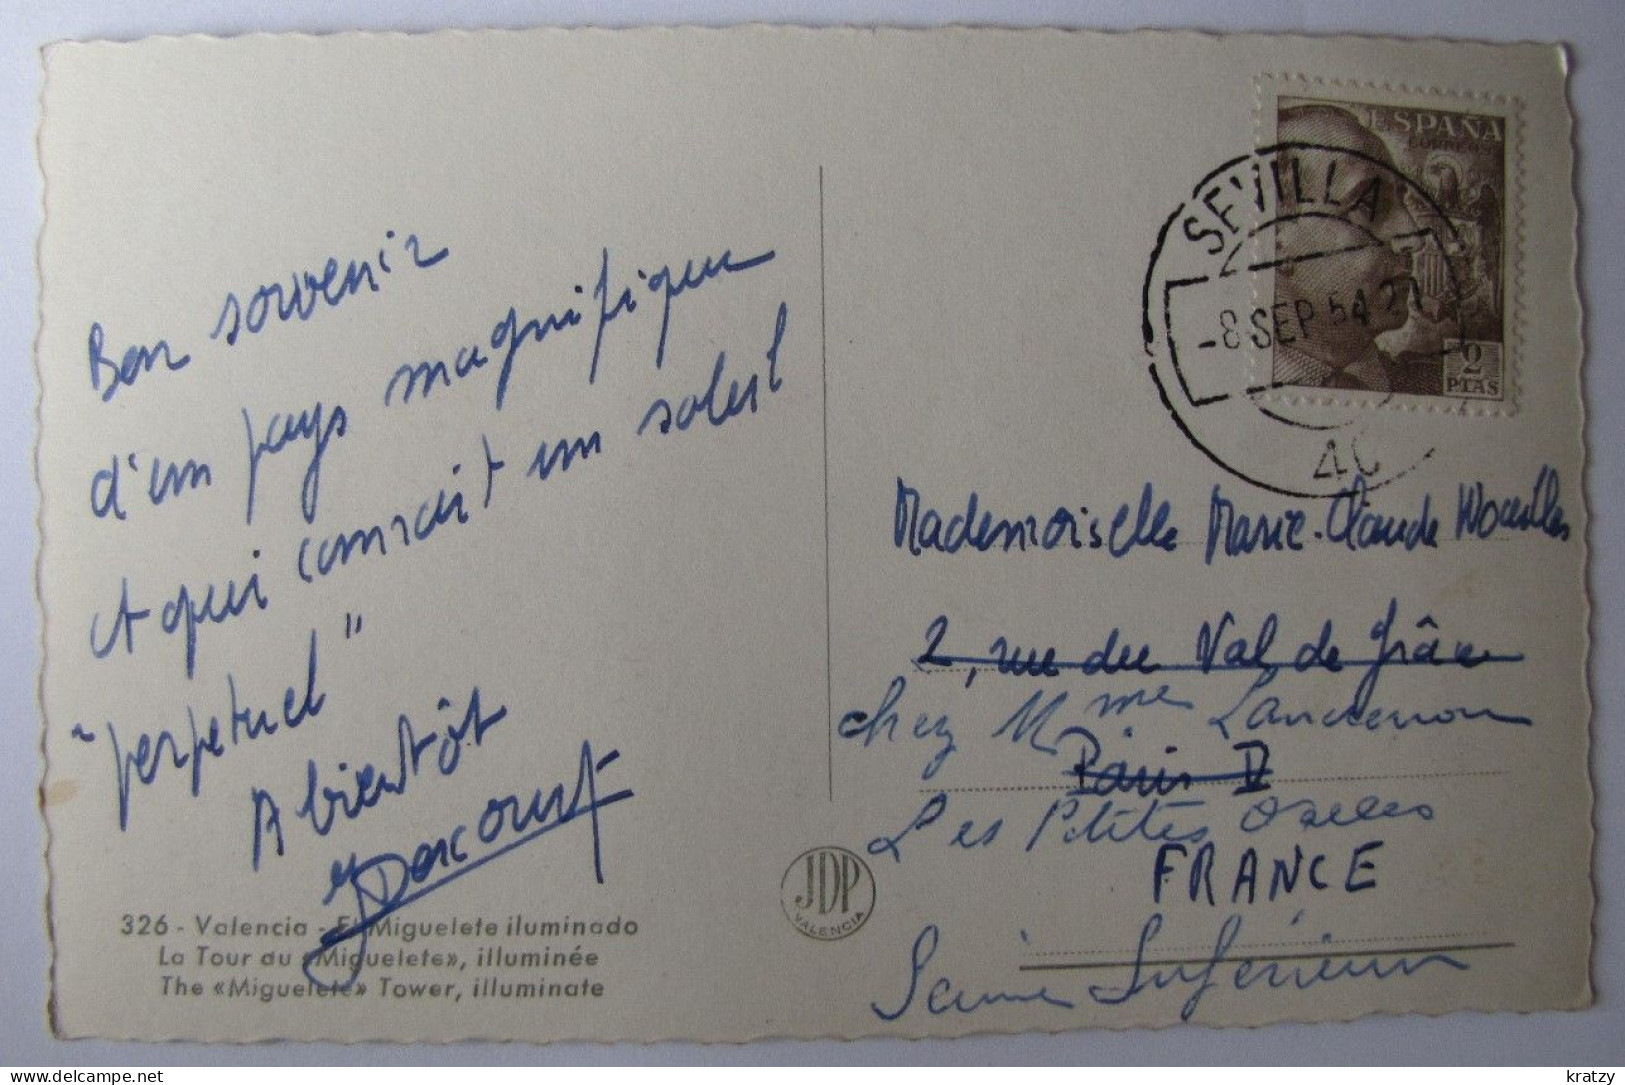 Bon souvenir
d'un pays magnifique
et qui connait un soleil
"perpetuel"
A bientôt
326 - Valencia - El Miguelete iluminado
La Tour du «Miguelete», illuminée
The «Miguelete» Tower, illuminate
JDP
VALENCIA
ESPAÑA
CORREOS
2
PTAS
SEVILLA
-8 SEP 54 21
Mademoiselle Marie-Claude
2, rue du Val de Grâce
chez Mme
Paris V
Les Petites
FRANCE
Seine Inférieure
kratzy